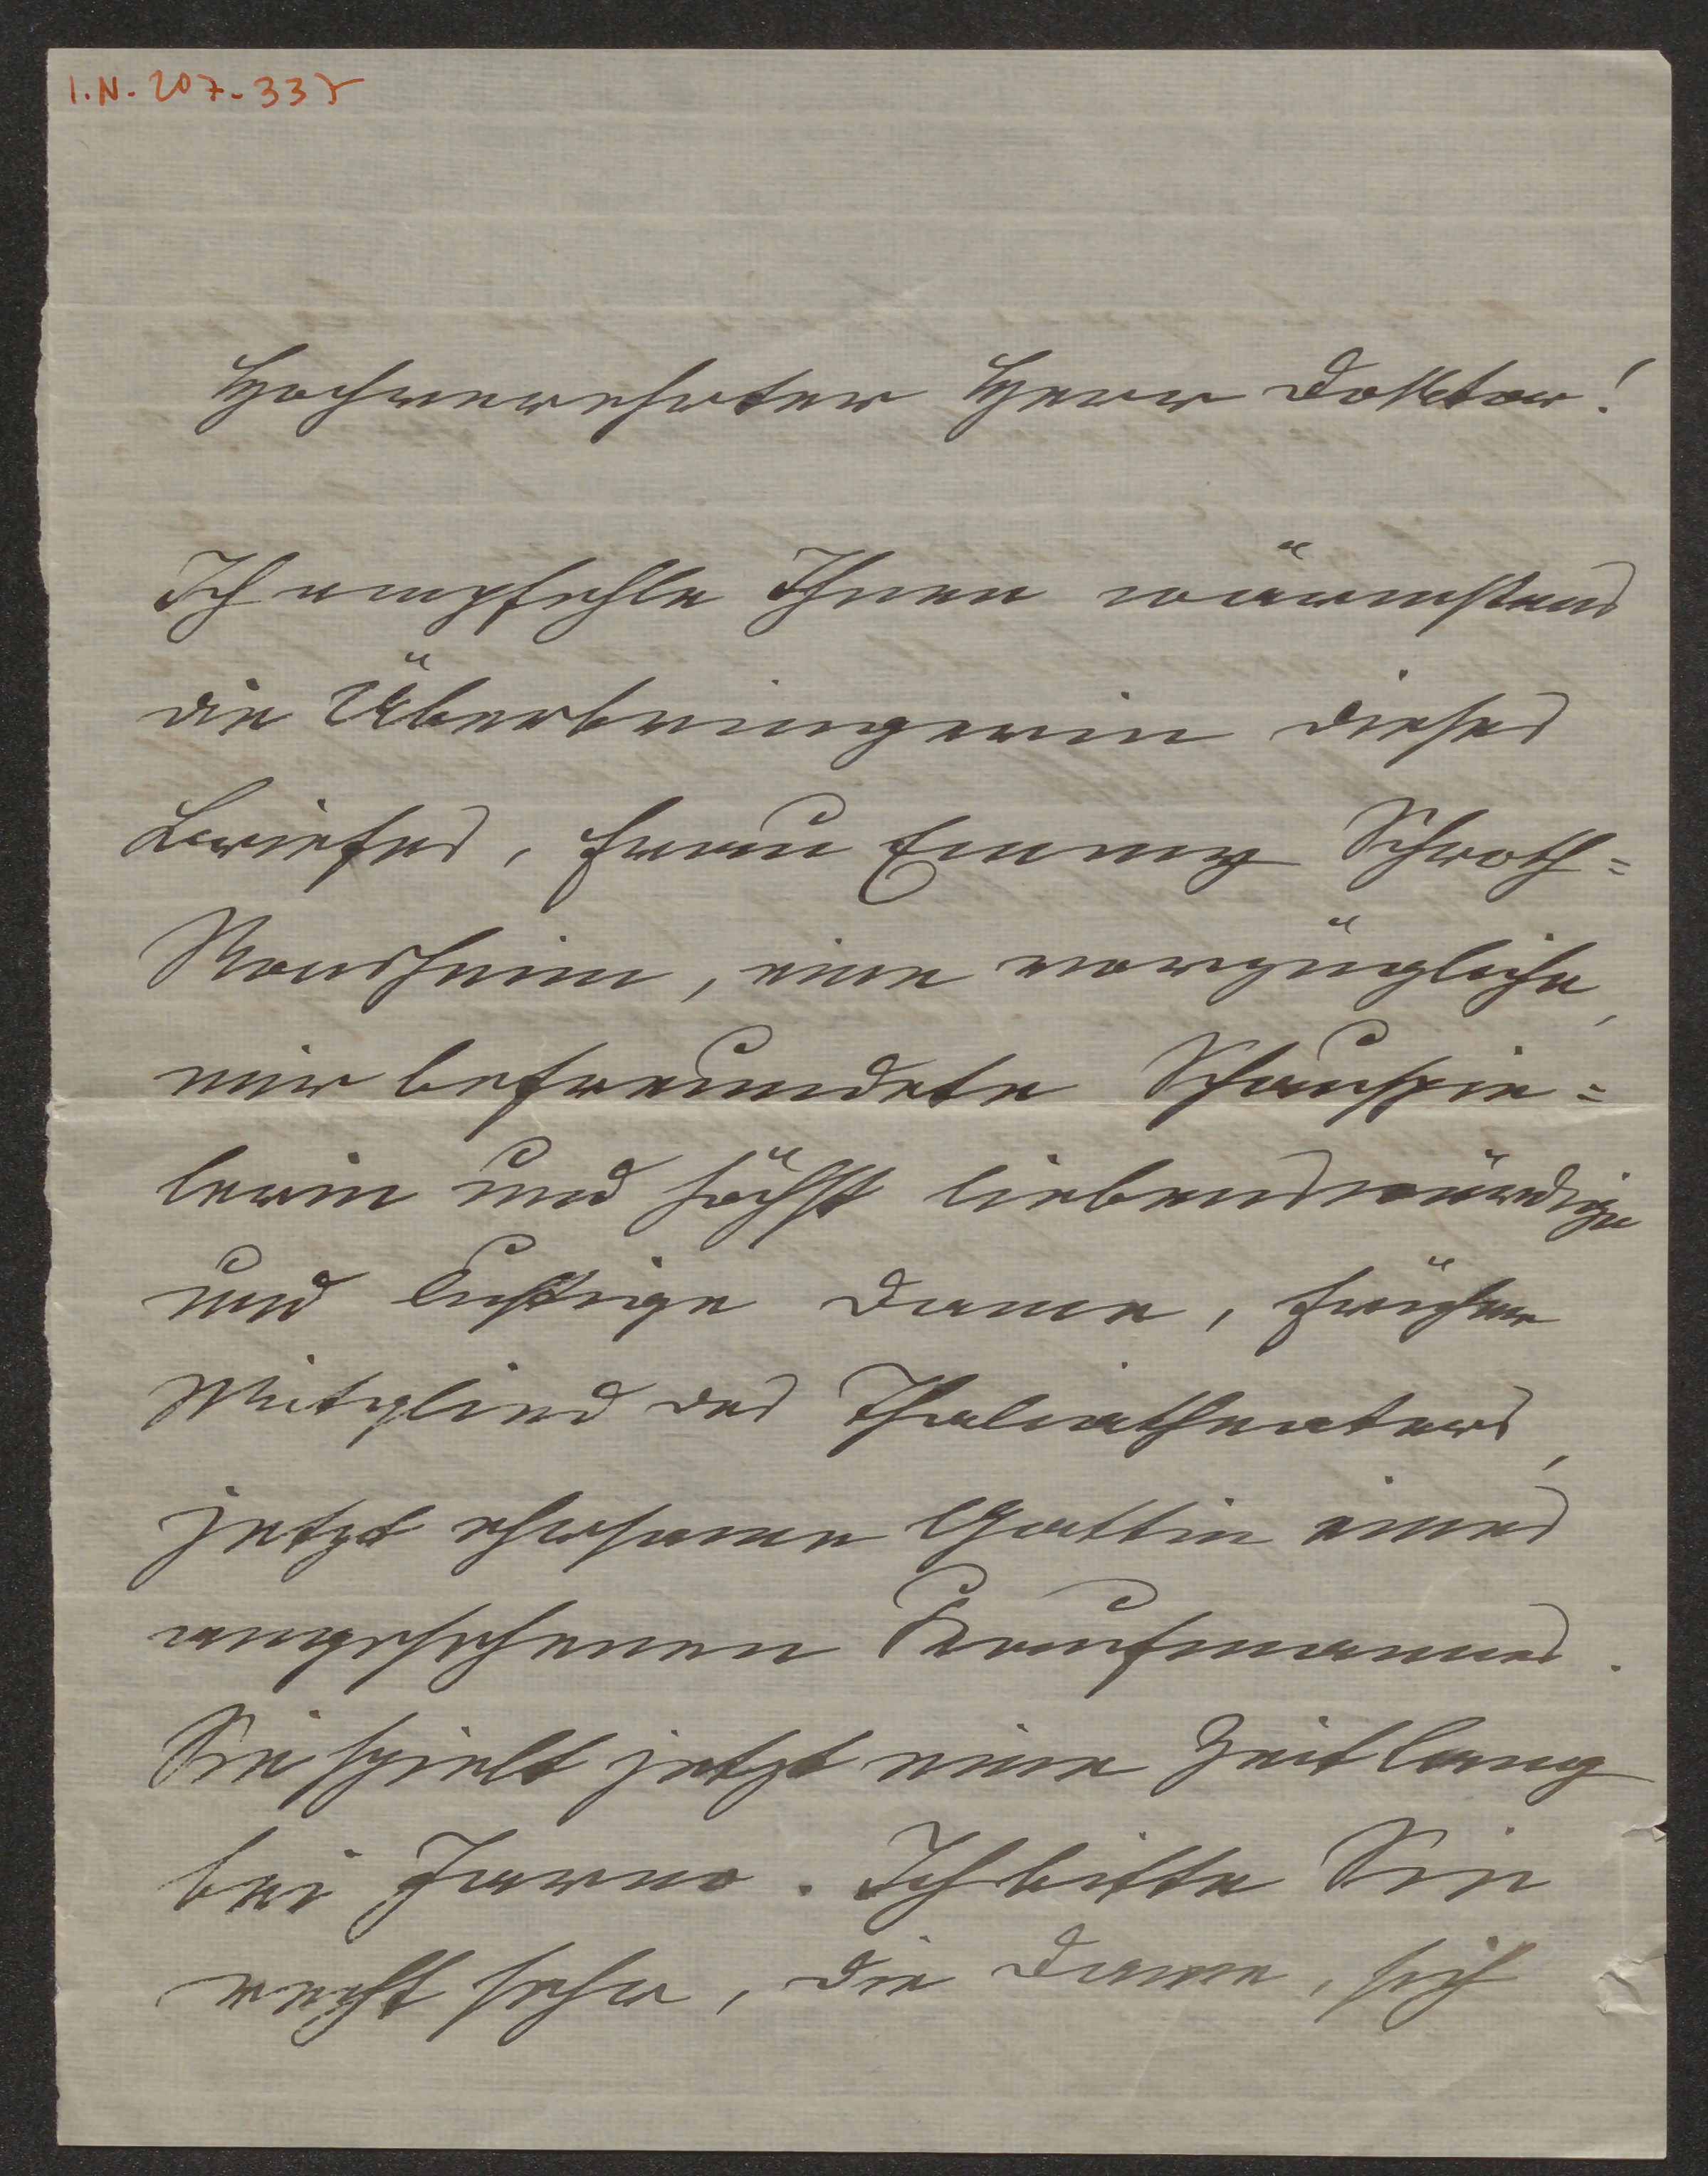 I.N. 207.337
Hochverehrter Herr Doktor!
Ich empfehle Ihnen wärmstens
die Überbringerin dieses
Briefes, Frau Emmy Schroth=
eine vorzügliche,
mir befreundete Schauspie=
lerin und höchst liebenswürdige
und lustige Dame, früher
Mitglied des Thaliatheaters,
jetzt ehrsame Gattin eines
angesehenen Kaufmannes.
Sie spielt jetzt eine Zeit lang
bei Jarno. Ich bitte Sie
recht sehr, die Dame, sich